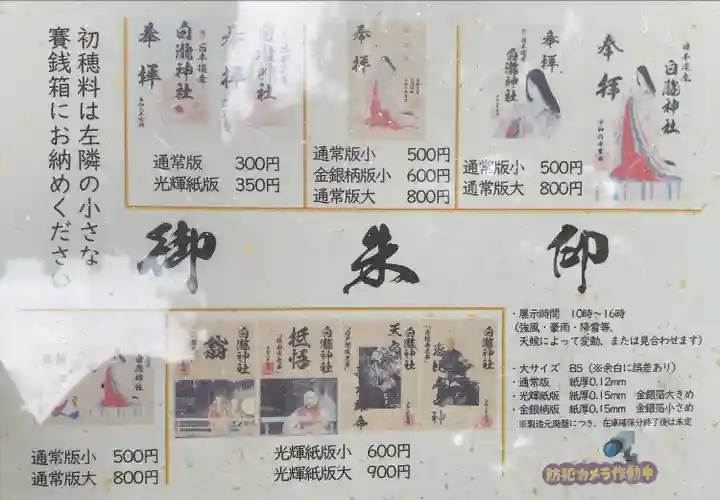 初穂料は左隣の小さな
賽銭箱にお納めください
奉拝
日本順産
白瀧神社
奉拝
白瀧神社
通常版 300円
光輝紙版 350円
奉拝
通常版小 500円
金銀柄版小 600円
通常版大 800円
奉拝
日本順産
白瀧神社
通常版小 500円
通常版大 800円
奉拝
日本順産
白瀧神社
御朱印
白瀧神社
通常版小 500円
通常版大 800円
白瀧神社
翁
白瀧神社
抵悟
白瀧神社
白瀧神社
光輝紙版小 600円
光輝紙版大 900円
・展示時間 10時~16時
(強風・豪雨・降雪等、
天候によって変動、または見合わせます)
・大サイズ B5(※余白に誤差あり)
・通常版 紙厚0.12mm
・光輝紙版 紙厚0.15mm 金銀箔大きめ
・金銀柄版 紙厚0.15mm 金銀箔小さめ
※製造元廃盤につき、在庫確保分終了後は未定
防犯カメラ作動中